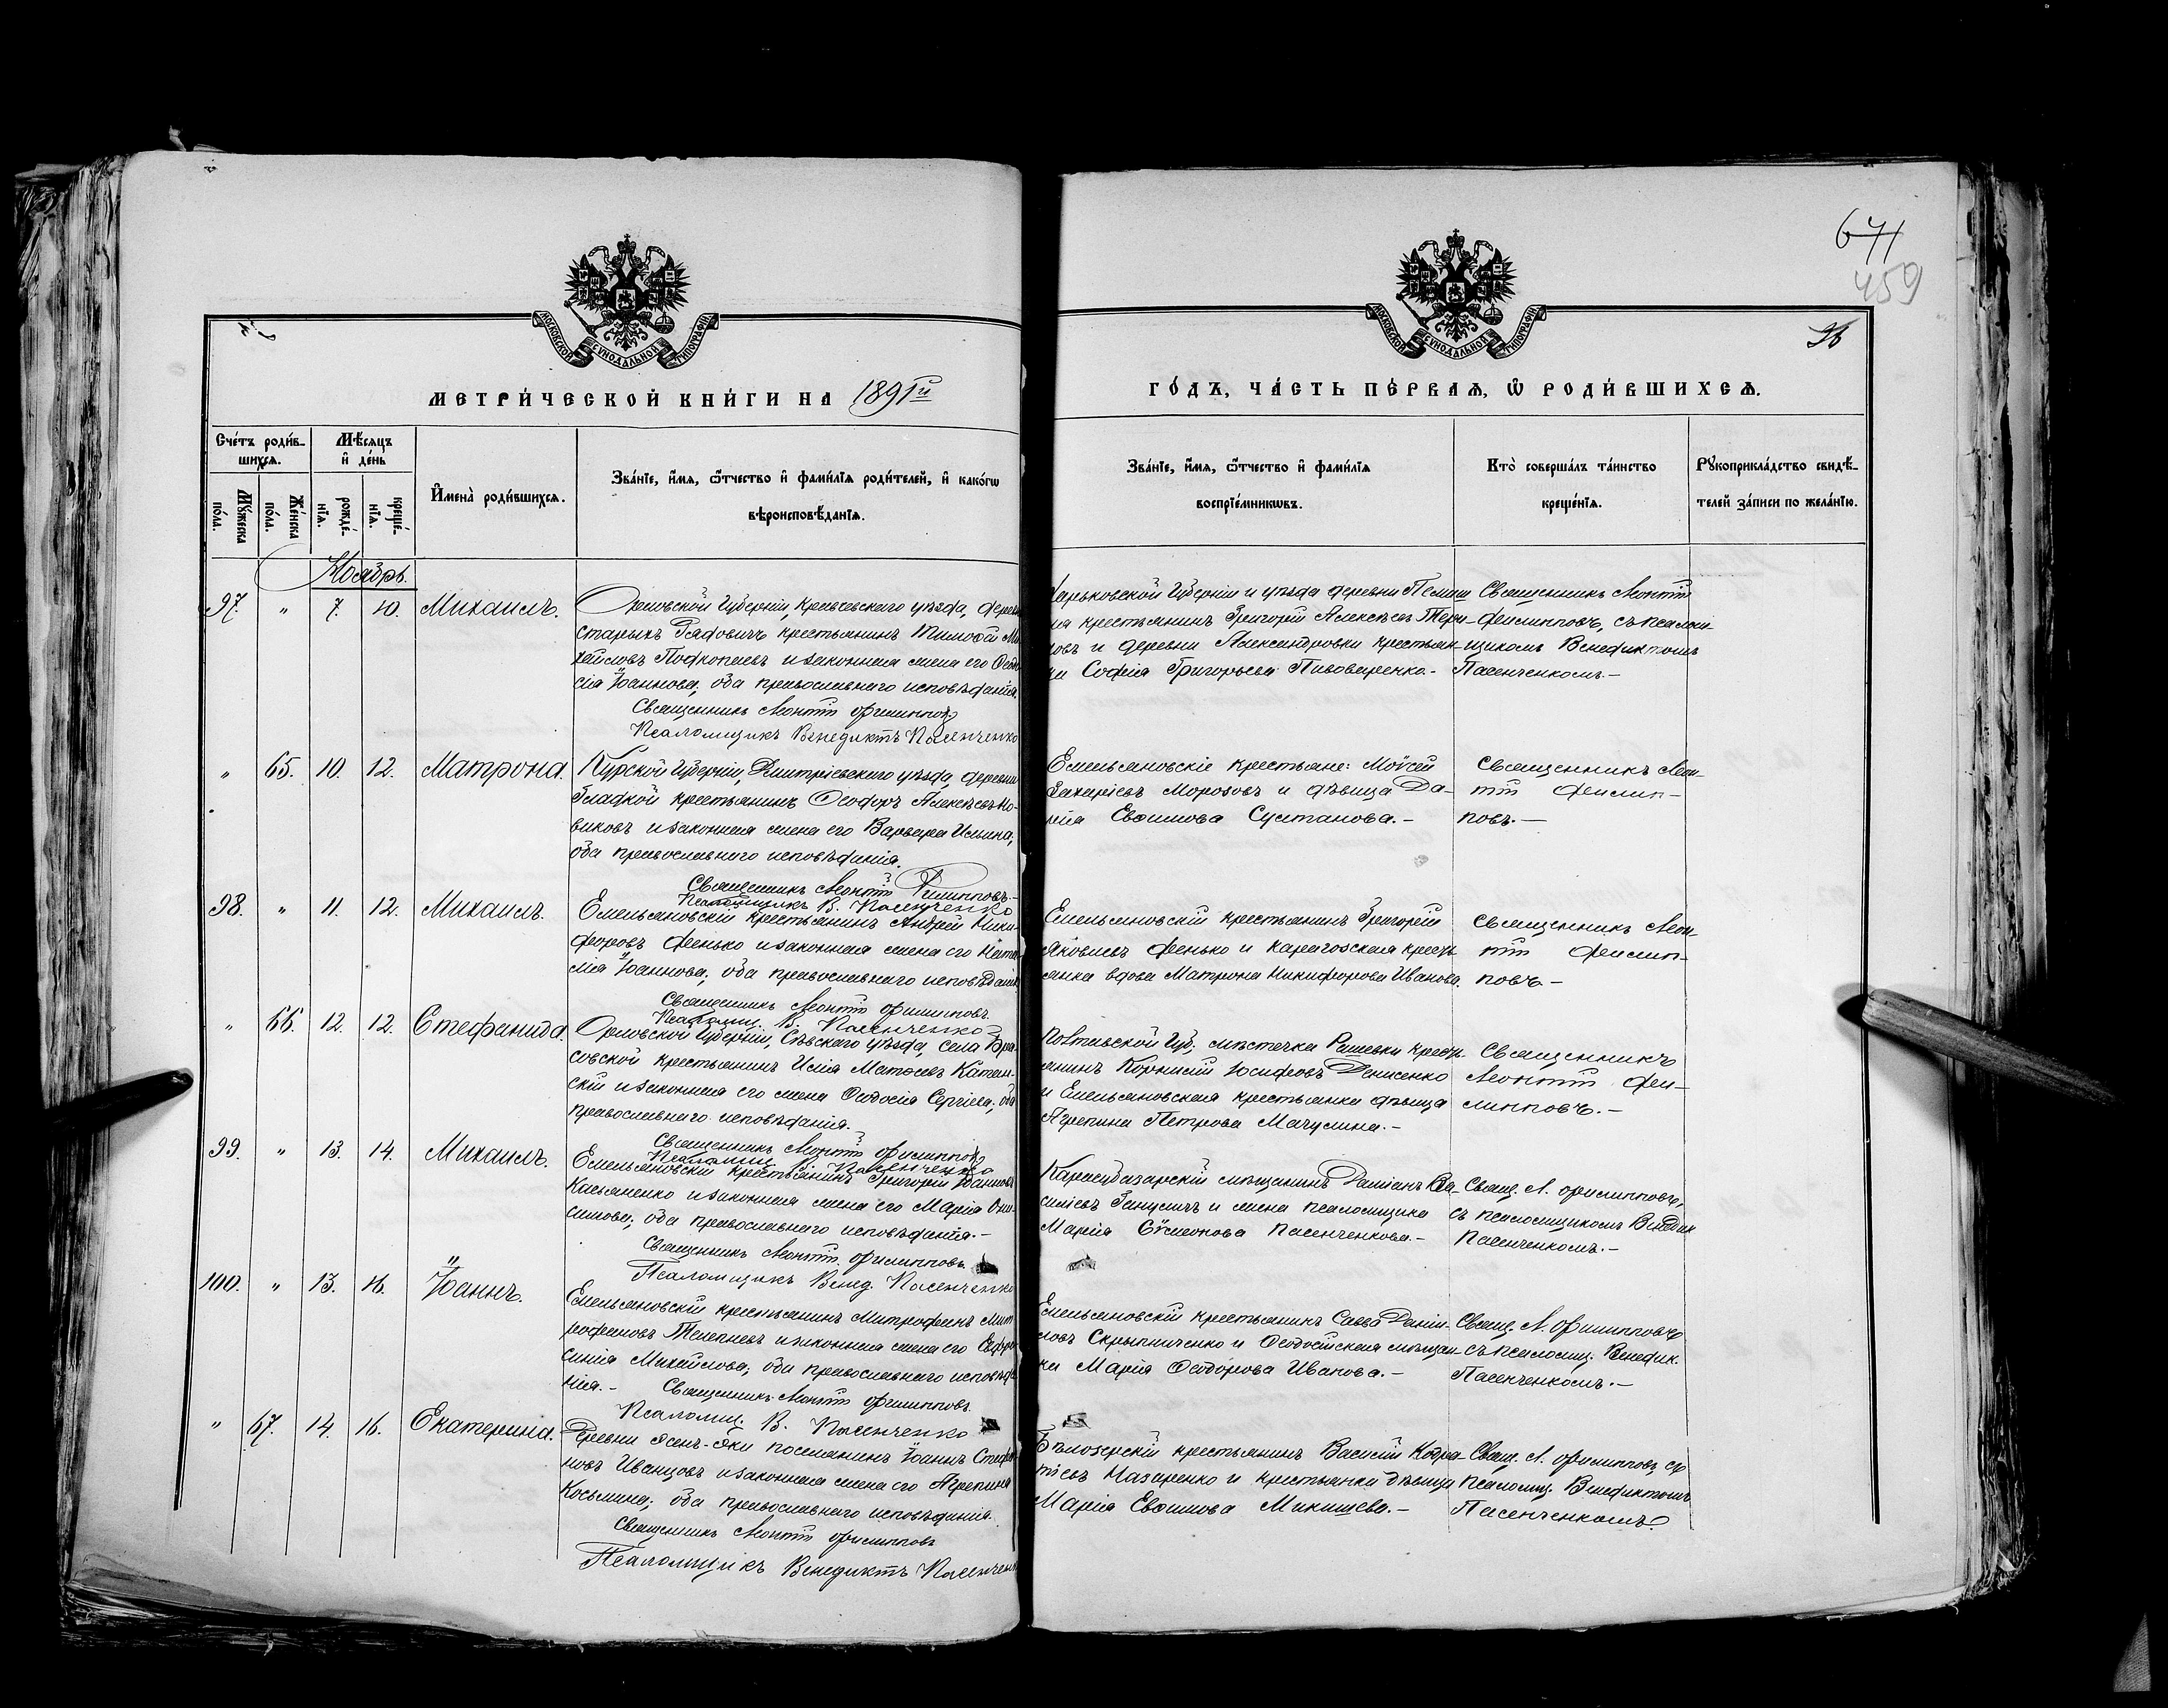 671
459
96
МОСКОВСКОЙ СѴНОДАЛЬНОЙ ТИПОГРАФІИ
МОСКОВСКОЙ СѴНОДАЛЬНОЙ ТИПОГРАФІИ
МЕТРИ́ЧЕСКОЙ КНИ́ГИ НА 1891й
ГО́ДЪ, ЧА́СТЬ ПЕ́РВАЯ, Ѡ РОДИ́ВШИХСЯ.
Сче́тъ роди́в-
шихся.
Мѣ́сяцъ
и҆ де́нь
Мꙋжеска
по́ла.
Же́нска
по́ла.
рожде́-
нїя.
креще́-
нїя.
И҆мена̀ роди́вшихся.
Зва́нїе, и҆́мя, ѻ҆́тчество и҆ фами́лїя роди́телей, и҆ како́гѡ
вѣроисповѣ́данїя.
Зва́нїе, и҆́мя, ѻ҆́тчество и҆ фами́лїя
воспрїе́мникѡвъ.
Кто̀ соверша́лъ та́инство
креще́нїя.
Рꙋкоприкла́дство свидѣ́-
телей за́писи по жела́нїю.
Ноябрь.
97. " 7. 10. Михаилъ.
Орловской Губерніи, уѣзда,
Старыхъ крестьянинъ Тимоѳей
Подкопаевъ и законная жена его
Іоаннова; оба православнаго исповѣданія.
Священникъ Леонтій Филипповъ
Псаломщикъ Венедиктъ Пасенченко
Харьковской Губерніи и уѣзда деревни
крестьянинъ Григорій Алексѣевъ
и деревни Александровки
Софія Григорьева Пивоваренко.-
Священникъ Леонтій
Филипповъ, съ псалом-
щикомъ Венедиктомъ
Пасенченкомъ.-
" 65. 10. 12. Матрона.
Курской Губерніи, Дмитріевскаго уѣзда, деревни
Гладкой крестьянинъ Ѳеодоръ Алексѣевъ Но-
виковъ и законная жена его Варвара Ильина;
оба православнаго исповѣданія.
Священникъ Леонтій Филипповъ.-
Псаломщикъ В. Пасенченко
Емельяновскіе крестьяне: Моѵсей
Захаріевъ Морозовъ и дѣвица Да-
рія Евѳимова Султанова.-
Священникъ Леон-
тій Филип-
повъ.-
98. " 11. 12. Михаилъ.
Емельяновскій крестьянинъ Андрей Ники-
форовъ Фенько и законная жена его Ната-
лія Іоаннова; оба православнаго исповѣданія.
Священникъ Леонтій Филипповъ.
Псаломщ. В. Пасенченко
Емельяновскій крестьянинъ Григорій
Яковлевъ Фенько и Карагозская кресть-
янка вдова Матрона Никифорова Иванова.
Священникъ Леон-
тій Филип-
повъ.-
" 66. 12. 12. Стефанида.
Орловской Губерніи, Сѣвскаго уѣзда, села Бра-
совской крестьянинъ Илія Матѳіевъ Катан-
скій и законная его жена Ѳеодосія Сергіева; оба
православнаго исповѣданія.
Священникъ Леонтій Филипповъ
Псаломщ. В. Пасенченко
Полтавской Губ; мѣстечка Рашевки кресть-
янинъ Корнилій Іосифовъ Денисенко
и Емельяновская крестьянка дѣвица
Агрепина Петрова Мачулина.-
Священникъ
Леонтій Фи-
липповъ.-
99. " 13. 14. Михаилъ.
Емельяновскій крестьянинъ Григорій Іоанновъ
Касьяненко и законная жена его Марія Они-
симова; оба православнаго исповѣданія.-
Священникъ Леонтій Филипповъ.
Псаломщикъ Венед. Пасенченко
Карасубазарскій мѣщанинъ Даміанъ Ва-
силіевъ и жена псаломщика
Марія Сѵмеонова Пасенченкова.-
Свящ. Л. Филипповъ,
съ псаломщикомъ Венедик.
Пасенченкомъ.-
100. " 13. 16. Іоаннъ.
Емельяновскій крестьянинъ Митрофанъ Мит-
рофановъ Телепневъ и законная жена его Евфро-
синія Михайлова; оба православнаго исповѣда-
нія.- Священникъ Леонтій Филипповъ.
Псаломщ. В. Пасенченко
Емельяновскій крестьянинъ Савва Даніи-
ловъ Скрыпниченко и Ѳеодосійская мѣщан-
ка Марія Ѳеодорова Иванова.-
Свящ. Л. Филипповъ
съ псаломщ. Венедик.
Пасенченкомъ.-
" 67. 14. 16. Екатерина.
Деревни поселянинъ Іоаннъ Стефа-
новъ Иванцовъ и законная жена его Агрепина
Косьмина; оба православнаго исповѣданія.
Священникъ Леонтій Филипповъ
Псаломщикъ Венедиктъ Пасенченко
Бѣлозерскій крестьянинъ Василій Кодра-
тіевъ Назаренко и крестьянка дѣвица
Марія Евѳимова Микишева.-
Свящ. Л. Филипповъ съ
псаломщ. Венедиктомъ
Пасенченкомъ.